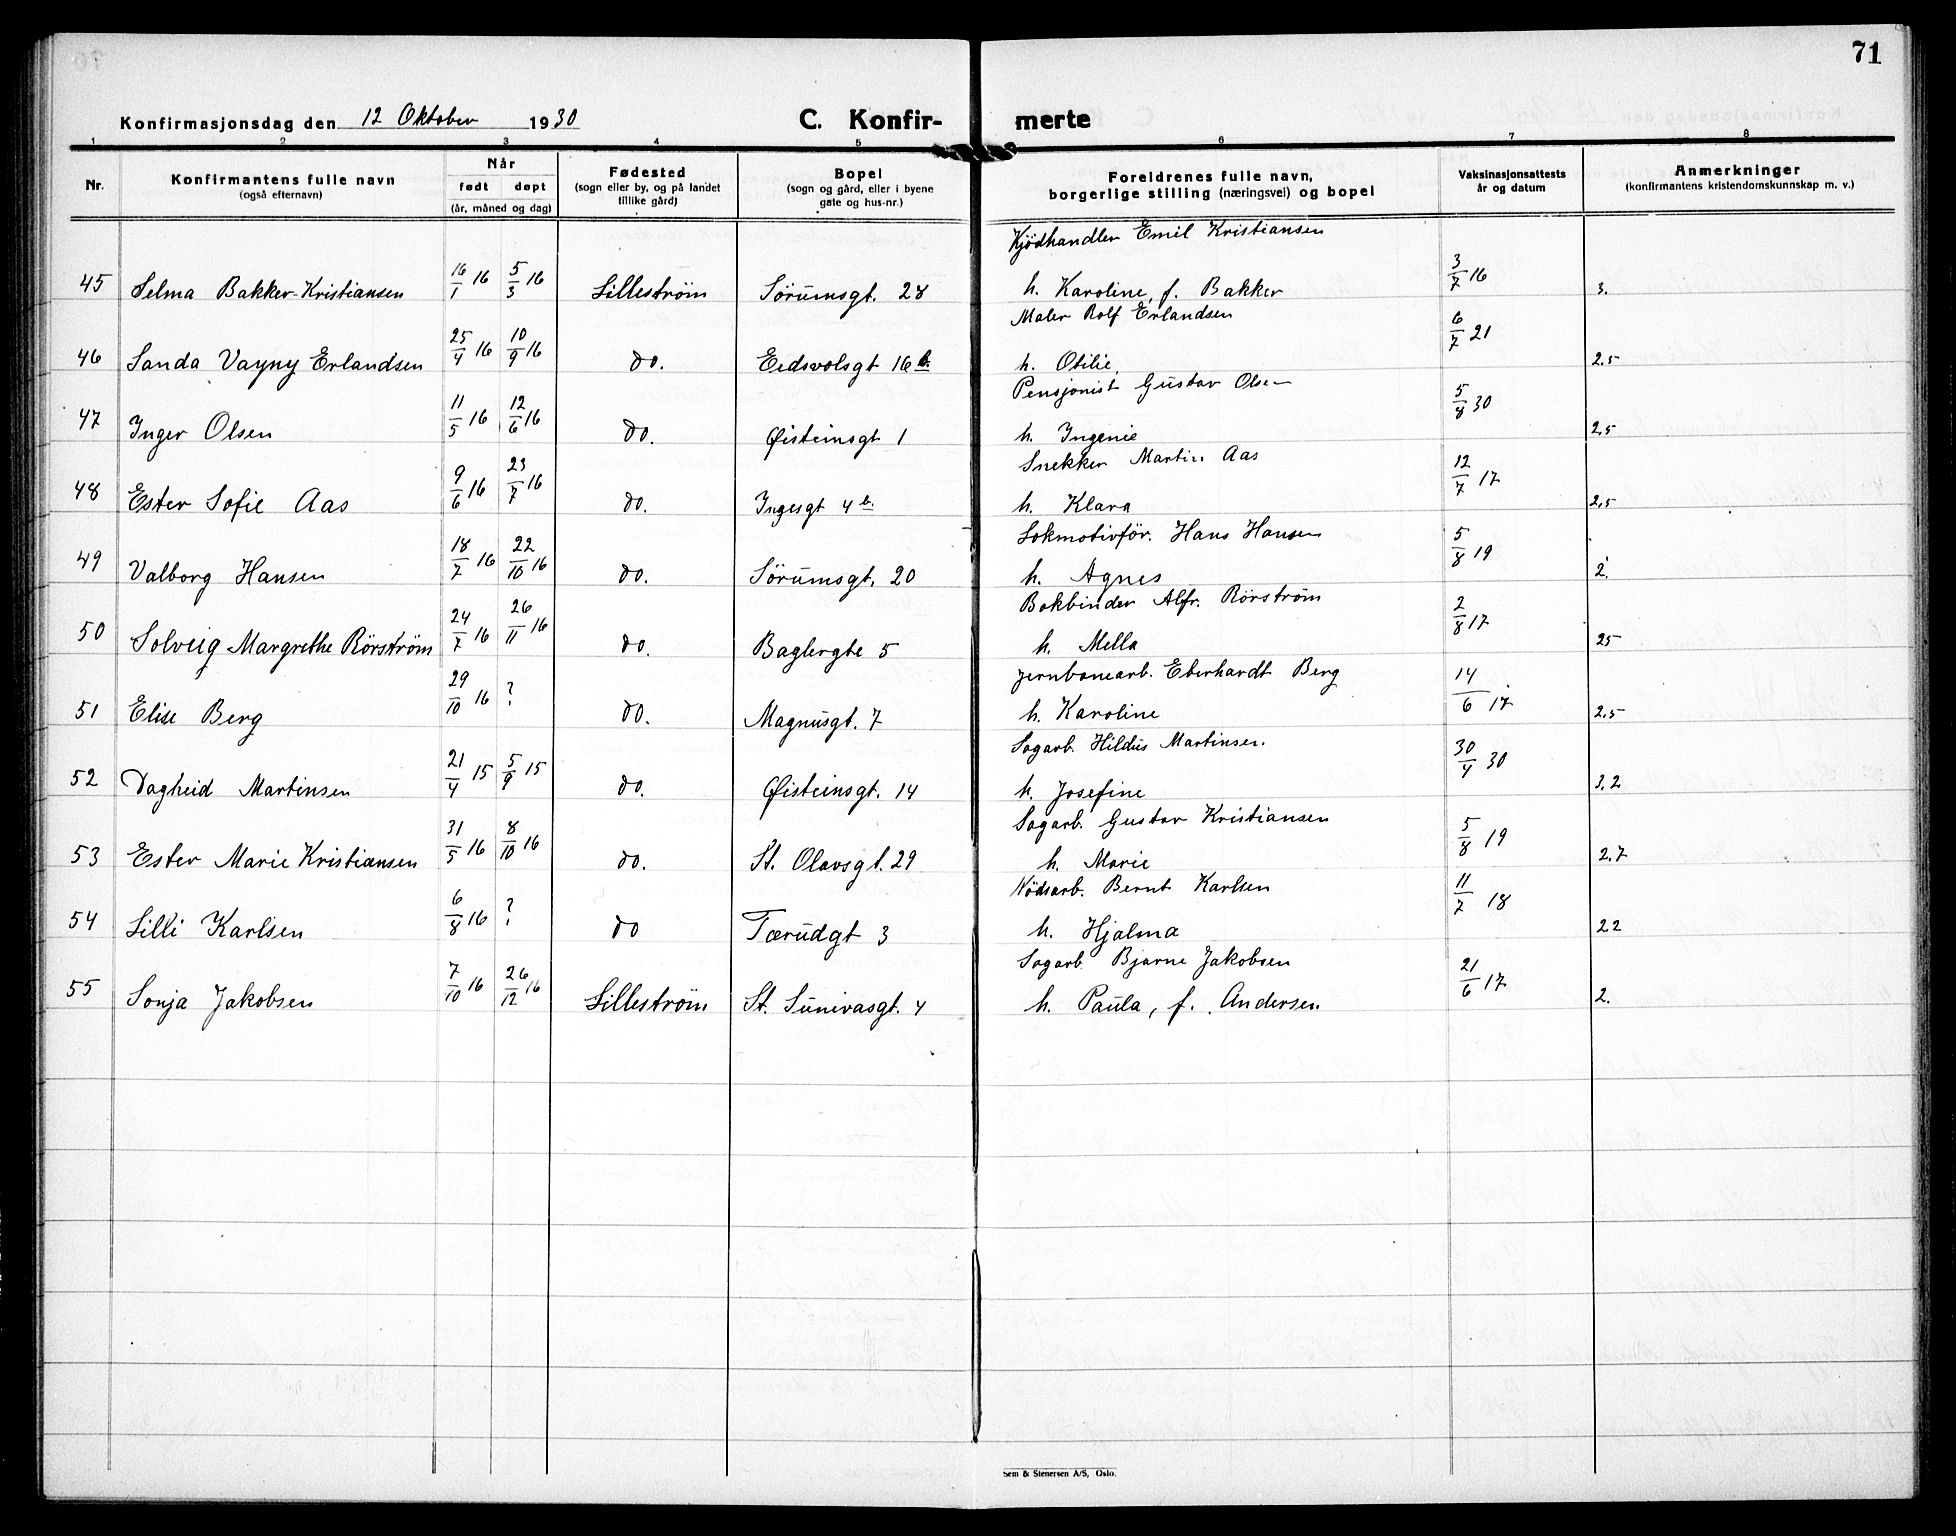 71
Konfirmasjonsdag den 12 Oktober 1930 C. Konfir- merte
1 2 3 4 5 6 7 8
Nr. Konfirmantens fulle navn (også efternavn) Når født døpt (år, måned og dag) Fødested (sogn eller by, og på landet tillike gård) Bopel (sogn og gård, eller i byene gate og hus-nr.) Foreldrenes fulle navn, borgerlige stilling (næringsvei) og bopel Vaksinasjonsattests år og datum Anmerkninger (konfirmantens kristendomskunnskap m. v.)
Kjödhandler Emil Kristiansen
45 Selma Bakker-Kristiansen 16/1 16 5/3 16 Lilleström Sörumsgt. 28 h. Karoline, f. Bakker 3/7 16 3.
Maler Rolf Erlandsen
46 Sanda Vayny Erlandsen 25/4 16 10/9 16 do. Eidsvolsgt 16 b. h. Otilie, 6/7 21 2.5
Pensjonist Gustav Olsen
47 Inger Olsen 11/5 16 12/6 16 do. Øisteinsgt 1 h. Ingenie 5/8 30 2.5
Snekker Martin Aas
48 Ester Sofie Aas 9/6 16 23/7 16 do. Ingesgt 4 b. h. Klara 12/7 17 2,5
Lokmotivför. Hans Hansen
49 Valborg Hansen 18/7 16 22/10 16 do. Sörumsgt. 20 h. Agnes 5/8 19 2.
Bokbinder Alfr. Rörström
50 Solveig Margrethe Rörström 24/7 16 26/11 16 do. Baglergte 5 h. Mella 2/8 17 25
Jernbanearb. Eberhardt Berg
51 Elise Berg 29/10 16 ? do. Magnusgt. 7 h. Karoline 14/6 17 2.5
Sagarb. Hildus Martinsen.
52 Dagheid Martinsen 21/4 15 5/9 15 do. Øisteinsgt. 14 h. Josefine 30/4 30 3.2
Sagarb. Gustav Kristiansen
53 Ester Marie Kristiansen 31/5 16 8/10 16 do. St. Olavsgt. 29 h. Marie 5/8 19 2.7
Nödsarb. Bernt Karlsen
54 Lilli Karlsen 6/8 16 ? do Tærudgt 3 h. Hjalma 11/7 18 22
Sagarb Bjarne Jakobsen
55 Sonja Jakobsen 7/10 16 26/12 16 Lilleström St. Sunivasgt. 4 h. Paula, f. Andersen 21/6 17 2.
Sem & Stenersen A/S, Oslo.